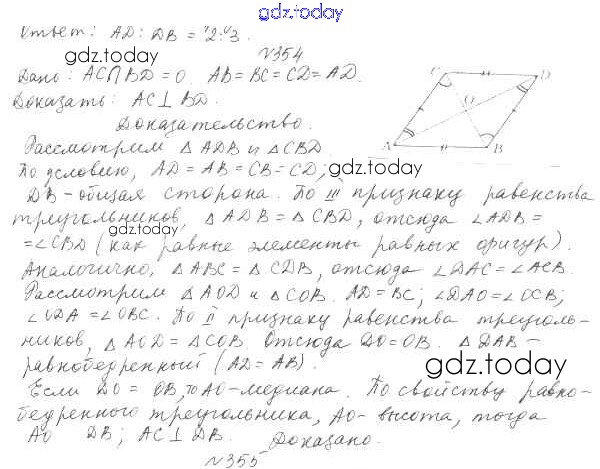 gdz.today
Ответ: AD : DB = 2:3.
gdz.today
N354
Дано: AC∩BD=O. AB=BC=CD=AD.
Доказать: AC⊥BD.
C D
O
A B
Доказательство.
Рассмотрим △ADB и △CBD.
По условию, AD=AB=CB=CD; gdz.today
DB-общая сторона. По III признаку равенства
треугольников, △ADB=△CBD, отсюда ∠ADB=
gdz.today
=∠CBD (как равные элементы равных фигур).
Аналогично, △ABC=△CDB, отсюда ∠DAC=∠ACB.
Рассмотрим △AOD и △COB. AD=BC; ∠DAO=∠OCB;
∠ODA=∠OBC. По II признаку равенства треуголь-
ников, △AOD=△COB. Отсюда DO=OB. △DAB-
равнобедренный (AD=AB).
gdz.today
Если DO=OB, то AO-медиана. По свойству равно-
бедренного треугольника, AO-высота, тогда
AO DB; AC⊥DB. Доказано.
gdz.today
N355